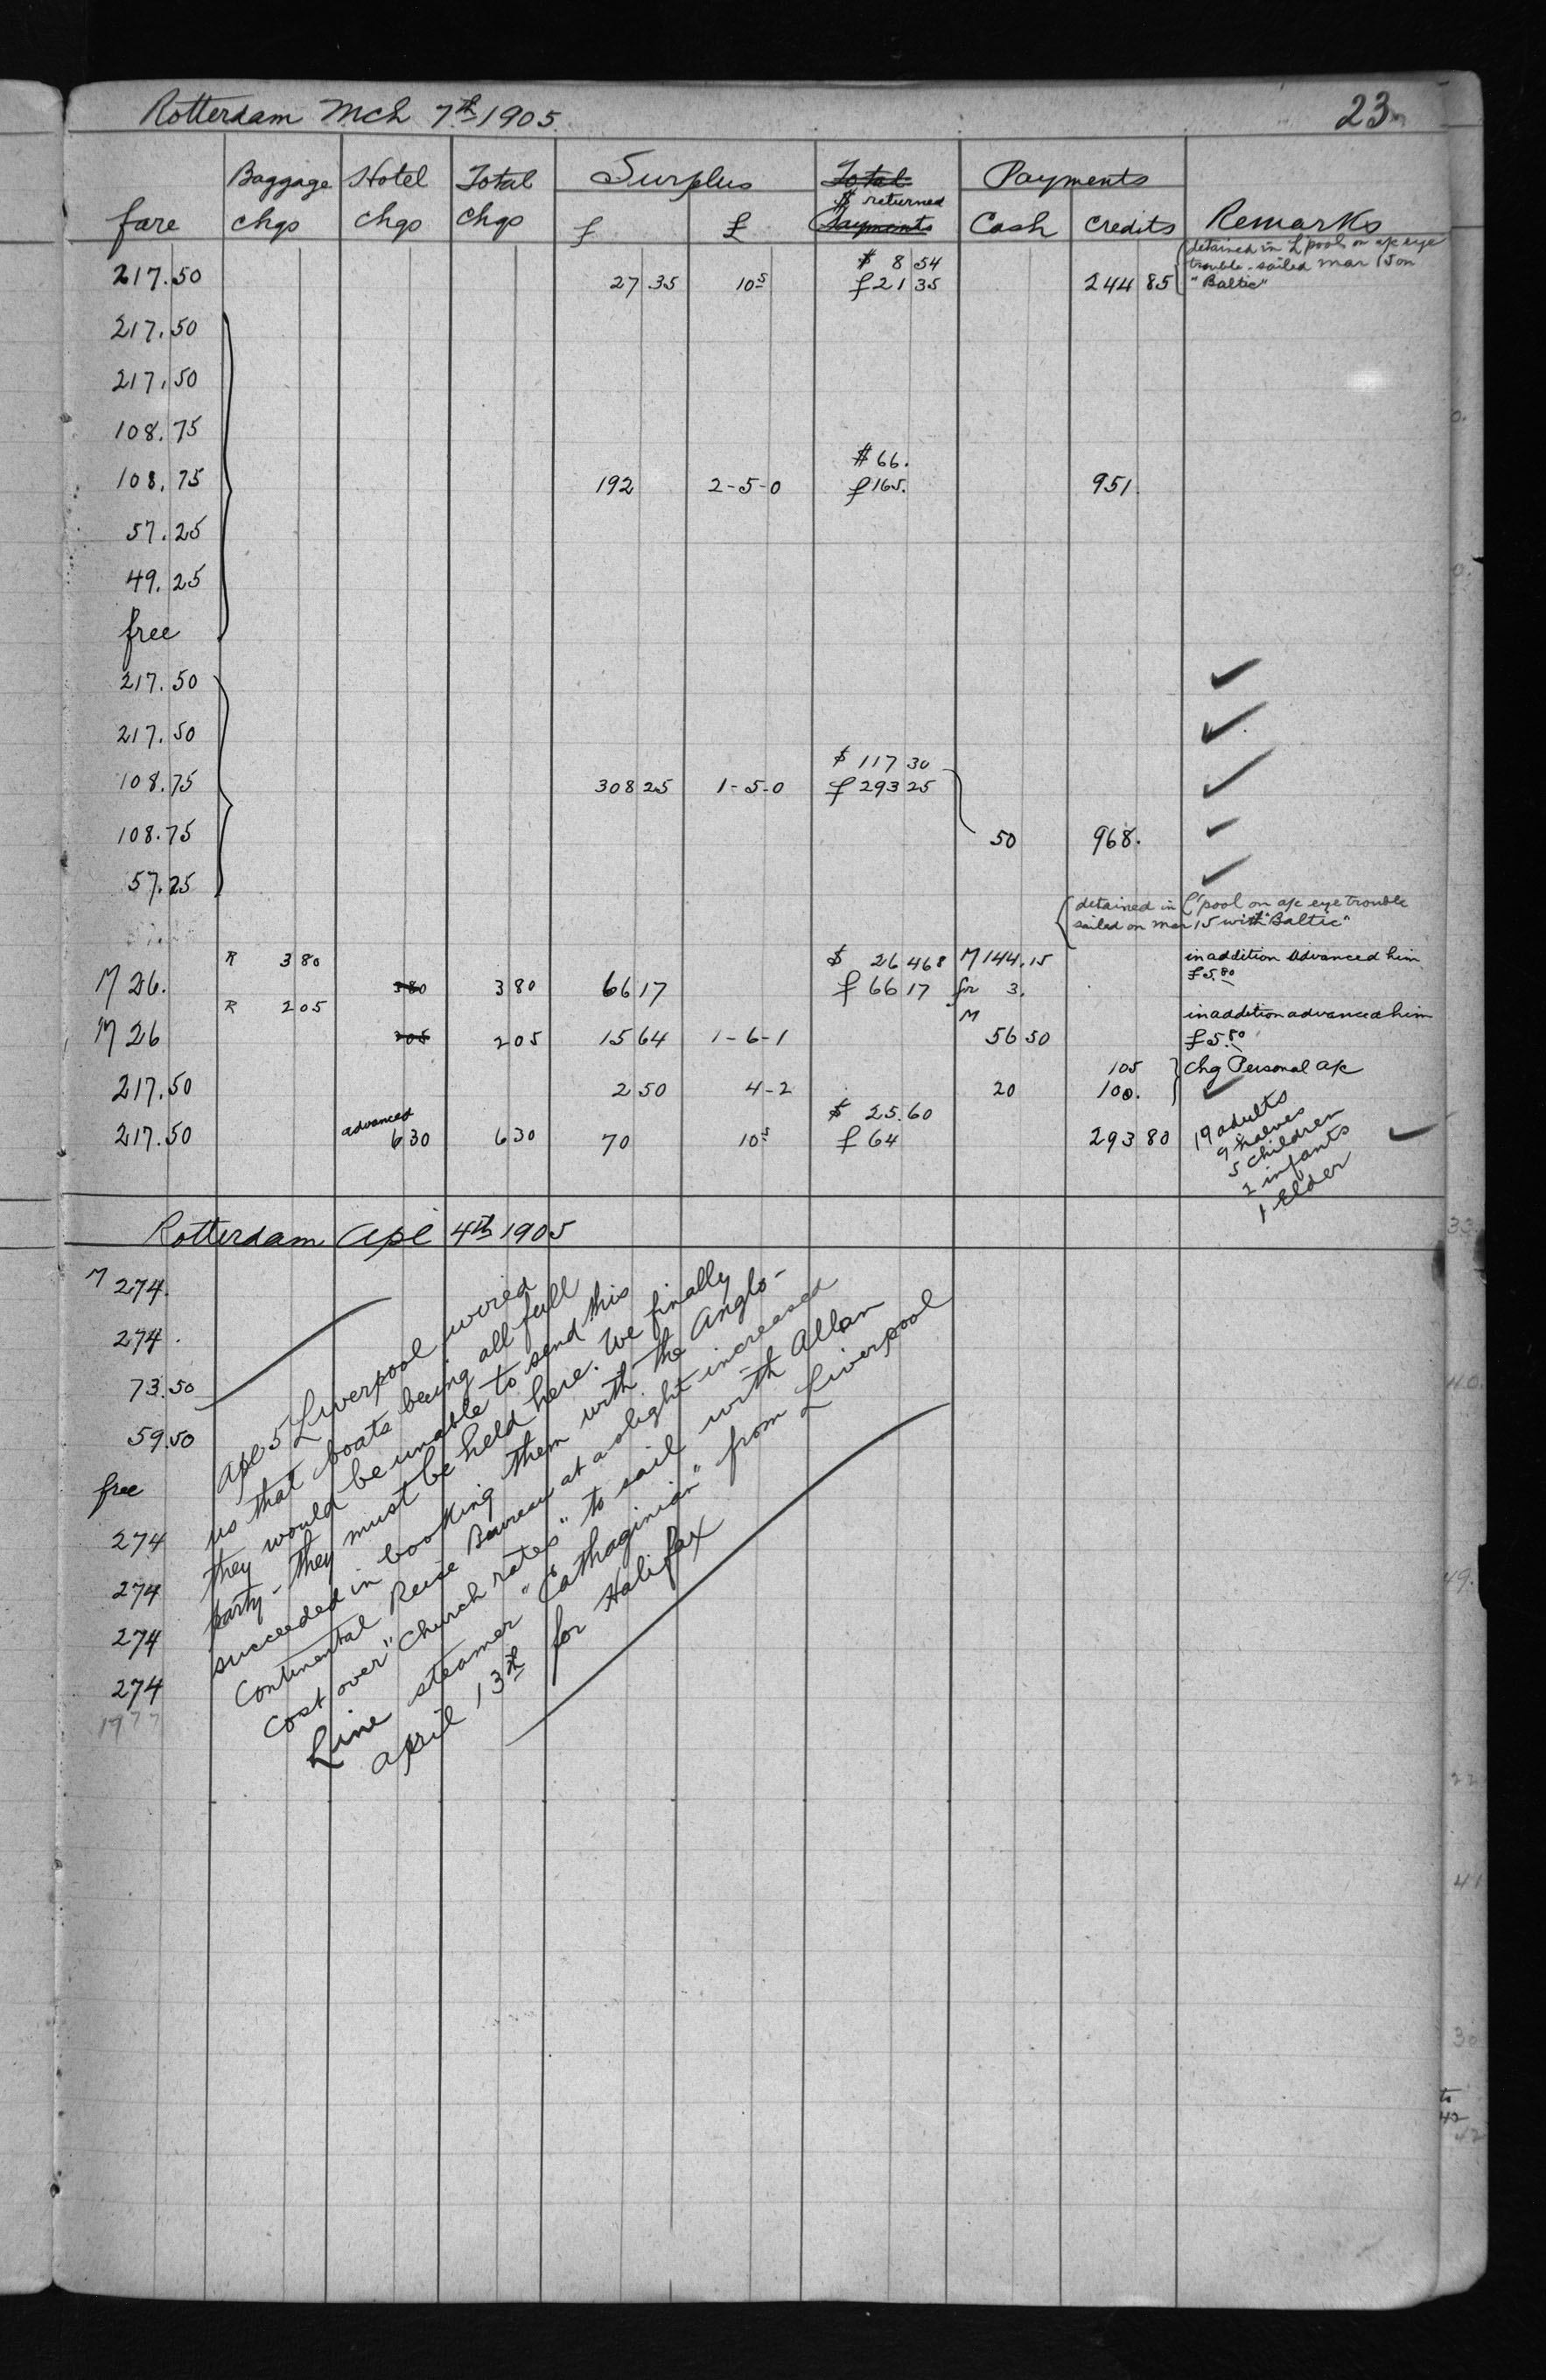 Rotterdam Mch 7th 1905 23
Baggage Hotel Total Surplus Total Payments
$ returned
fare chgs chgs chgs ƒ £ Payments Cash Credits Remarks
detained in L'pool on a/c eye
$ 8 54 trouble - sailed mar 15 on
217.50 27 35 10s ƒ 21 35 244 85 "Baltic"
217.50
217.50
108.75
$ 66.
108.75 192 2-5-0 ƒ 165. 951.
57.25
49.25
free
217.50 ✓
217.50 ✓
$ 117 30
108.75 308 25 1-5-0 ƒ 293 25 ✓
108.75 50 968. ✓
57.25 ✓
detained in L'pool on a/c eye trouble
sailed on mar 15 with "Baltic"
R 3 80 $ 26 468 M 144.15 in addition advanced him
M 26. 3 80 3 80 66 17 ƒ 66 17 for 3. £5.80
R 2 05 M in addition advanced him
M 26 2 05 2 05 15 64 1-6-1 56 50 £5.80
105 chg Personal a/c
217.50 2 50 4-2 20 100. ✓
advanced $ 25.60
217.50 6 30 6 30 70 10s ƒ 64 293 80 ✓
19 adults
9 halves
5 children
2 infants
1 Elder
Rotterdam Apl 4th 1905
M 274.
274.
73.50
59.50
free
274
274
274
274
1977
Apl 5 Liverpool wired
us that boats being all full
they would be unable to send this
party - they must be held here. We finally
succeeded in booking them with the Anglo-
Continental Reise Bureau at a slight increased
cost over "Church rates" to sail with Allan
Line steamer "Cathaginian" from Liverpool
April 13th for Halifax
0.
0.
33.
110.
49.
22
41
30
to
42
42